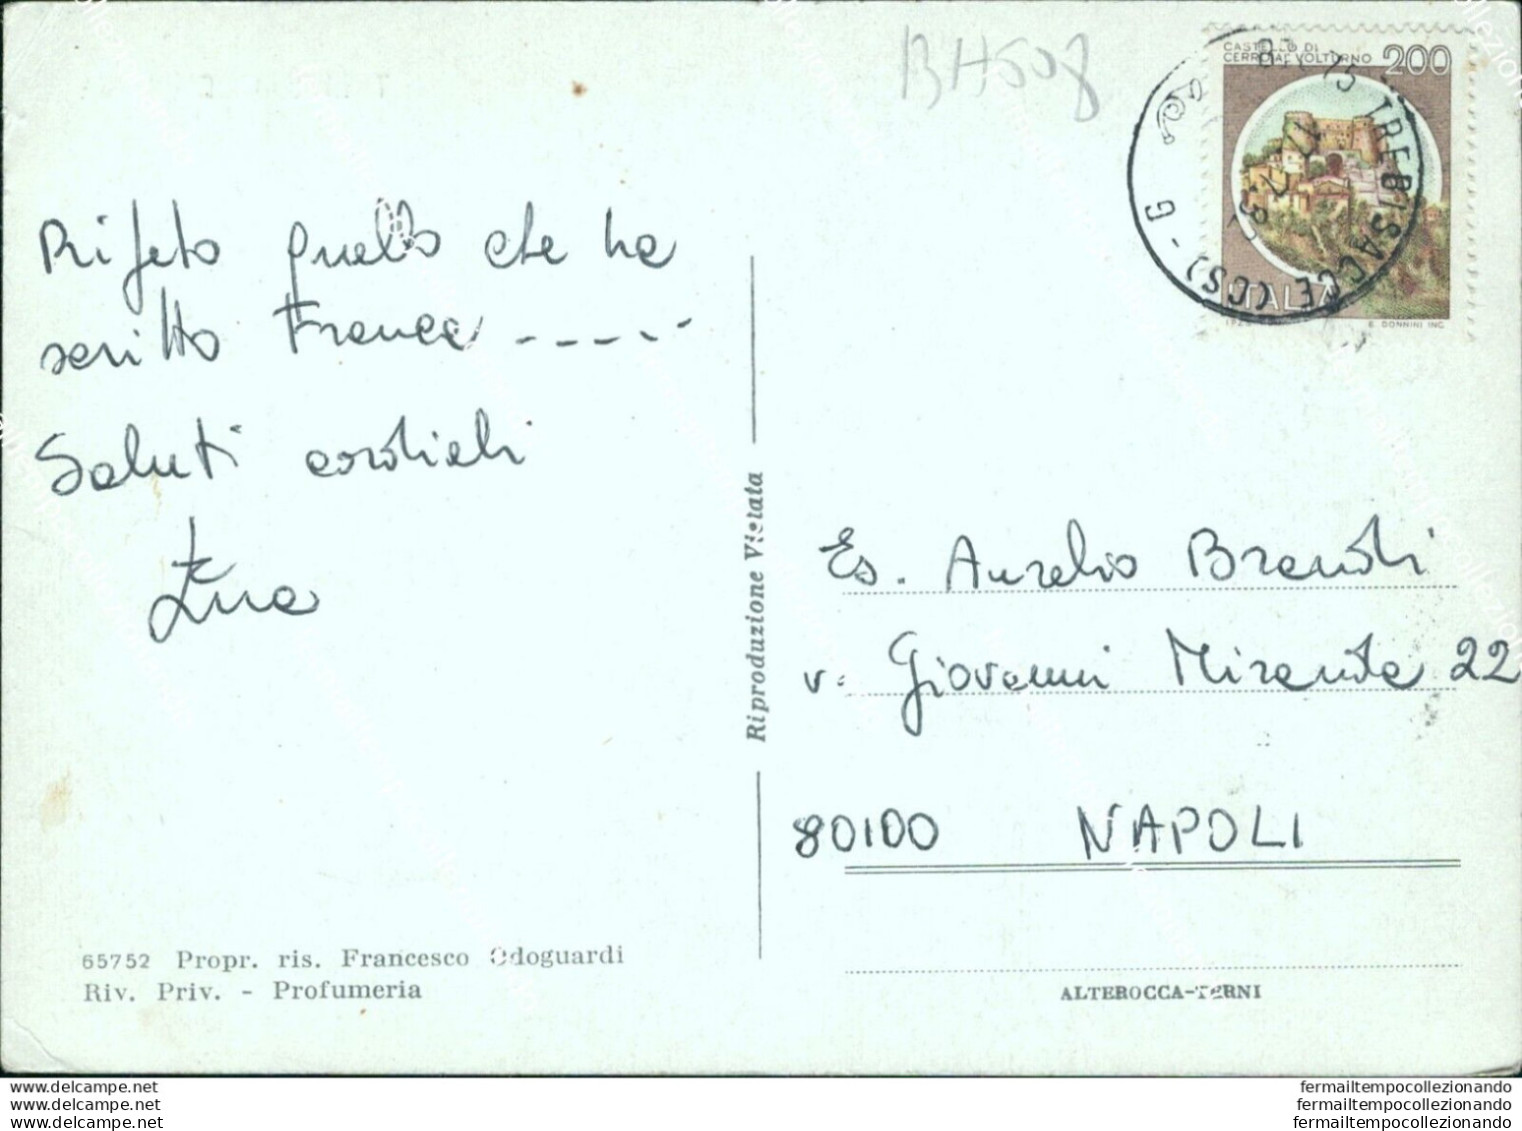 BH508
CASTELLO DI
CERRO AL VOLTURNO
200
ITALIA
E. DONNINI INC.
87075 TREBISACCE (CS)
Ripeto quello che ha
scritto Franca -----
Saluti cordiali
Es. Aurelio Brandi
v. Giovanni Miranda 22
80100 NAPOLI
Riproduzione Vietata
65752 Propr. ris. Francesco Odoguardi
Riv. Priv. - Profumeria
ALTEROCCA-TERNI
delcampe.net
delcampe.net
delcampe.net
fermailtempocollezionando
fermailtempocollezionando
fermailtempocollezionando